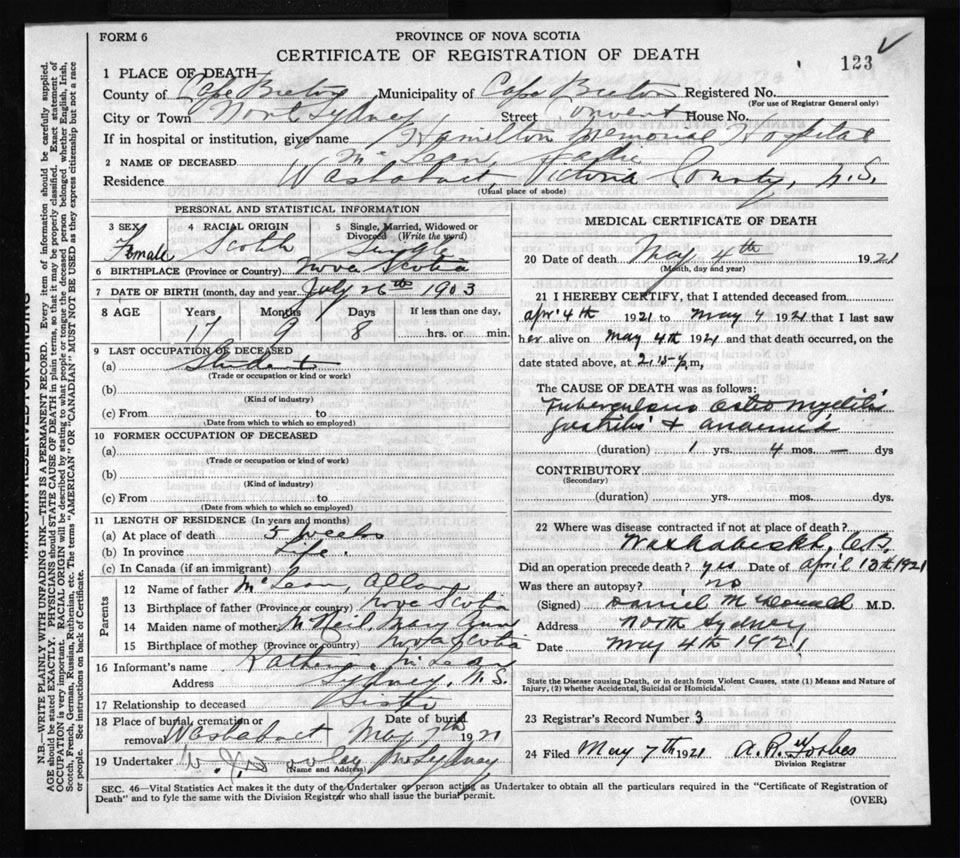 FORM 6
PROVINCE OF NOVA SCOTIA
CERTIFICATE OF REGISTRATION OF DEATH
123
1 PLACE OF DEATH
County of Cape Breton Municipality of Cape Breton Registered No.
(For use of Registrar General only)
City or Town North Sydney Street Convent House No.
If in hospital or institution, give name Hamilton Memorial Hospital
2 NAME OF DECEASED McLean, Sadie
Residence Washabuct, Victoria County, N.S.
(Usual place of abode)
PERSONAL AND STATISTICAL INFORMATION
3 SEX Female
4 RACIAL ORIGIN Scotch
5 Single, Married, Widowed or Divorced (Write the word) Single
6 BIRTHPLACE (Province or Country) Nova Scotia
7 DATE OF BIRTH (month, day and year July 26th 1903
8 AGE Years Months Days If less than one day,
17 9 8 hrs. or min.
9 LAST OCCUPATION OF DECEASED
(a) Student
(Trade or occupation or kind or work)
(b)
(Kind of industry)
(c) From to
(Date from which to which so employed)
10 FORMER OCCUPATION OF DECEASED
(a)
(Trade or occupation or kind of work)
(b)
(Kind of industry)
(c) From to
(Date from which to which so employed)
11 LENGTH OF RESIDENCE (In years and months)
(a) At place of death 5 weeks
(b) In province Life.
(c) In Canada (if an immigrant)
Parents
12 Name of father McLean, Allan
13 Birthplace of father (Province or country) Nova Scotia
14 Maiden name of mother McNeil, Mary Ann
15 Birthplace of mother (Province or country) Nova Scotia
16 Informant's name McLean
Address Sydney, N.S.
17 Relationship to deceased Sister
18 Place of burial, cremation or removal Washabuct Date of burial May 7th 1921
19 Undertaker No. Sydney
(Name and Address)
MEDICAL CERTIFICATE OF DEATH
20 Date of death May 4th 1921
(Month, day and year)
21 I HEREBY CERTIFY, that I attended deceased from
Apr. 4th 1921 to May 4 1921 that I last saw
her alive on May 4th 1921 and that death occurred, on the
date stated above, at 2.15 p.m,
The CAUSE OF DEATH was as follows:
Tuberculous Osteo Myelitis
Gastritis & anaemia
(duration) 1 yrs. 4 mos. — dys
CONTRIBUTORY
(Secondary)
(duration) yrs. mos. dys.
22 Where was disease contracted if not at place of death?
C.B.
Did an operation precede death? yes Date of April 13th 1921
Was there an autopsy? no
(Signed) Daniel McDonald M.D.
Address North Sydney
Date May 4th 1921
State the Disease causing Death, or in death from Violent Causes, state (1) Means and Nature of Injury, (2) whether Accidental, Suicidal or Homicidal.
23 Registrar's Record Number 3
24 Filed May 7th 1921 A. R. Forbes
Division Registrar
SEC. 46—Vital Statistics Act makes it the duty of the Undertaker or person acting as Undertaker to obtain all the particulars required in the "Certificate of Registration of
Death" and to fyle the same with the Division Registrar who shall issue the burial permit.
(OVER)
MARGIN RESERVED FOR BINDING
N.B.—WRITE PLAINLY WITH UNFADING INK—THIS IS A PERMANENT RECORD. Every item of information should be carefully supplied.
AGE should be stated EXACTLY. PHYSICIANS should STATE CAUSE OF DEATH in plain terms, so that it may be properly classified. Exact statement of
OCCUPATION is very important. RACIAL ORIGIN will be described by stating to what people or tongue the deceased person belonged whether English, Irish,
Scotch, French, German, Russian, Ruthenian, etc. The terms "AMERICAN" OR "CANADIAN" MUST NOT BE USED as they express citizenship but not a race
or people. See instructions on back of Certificate.